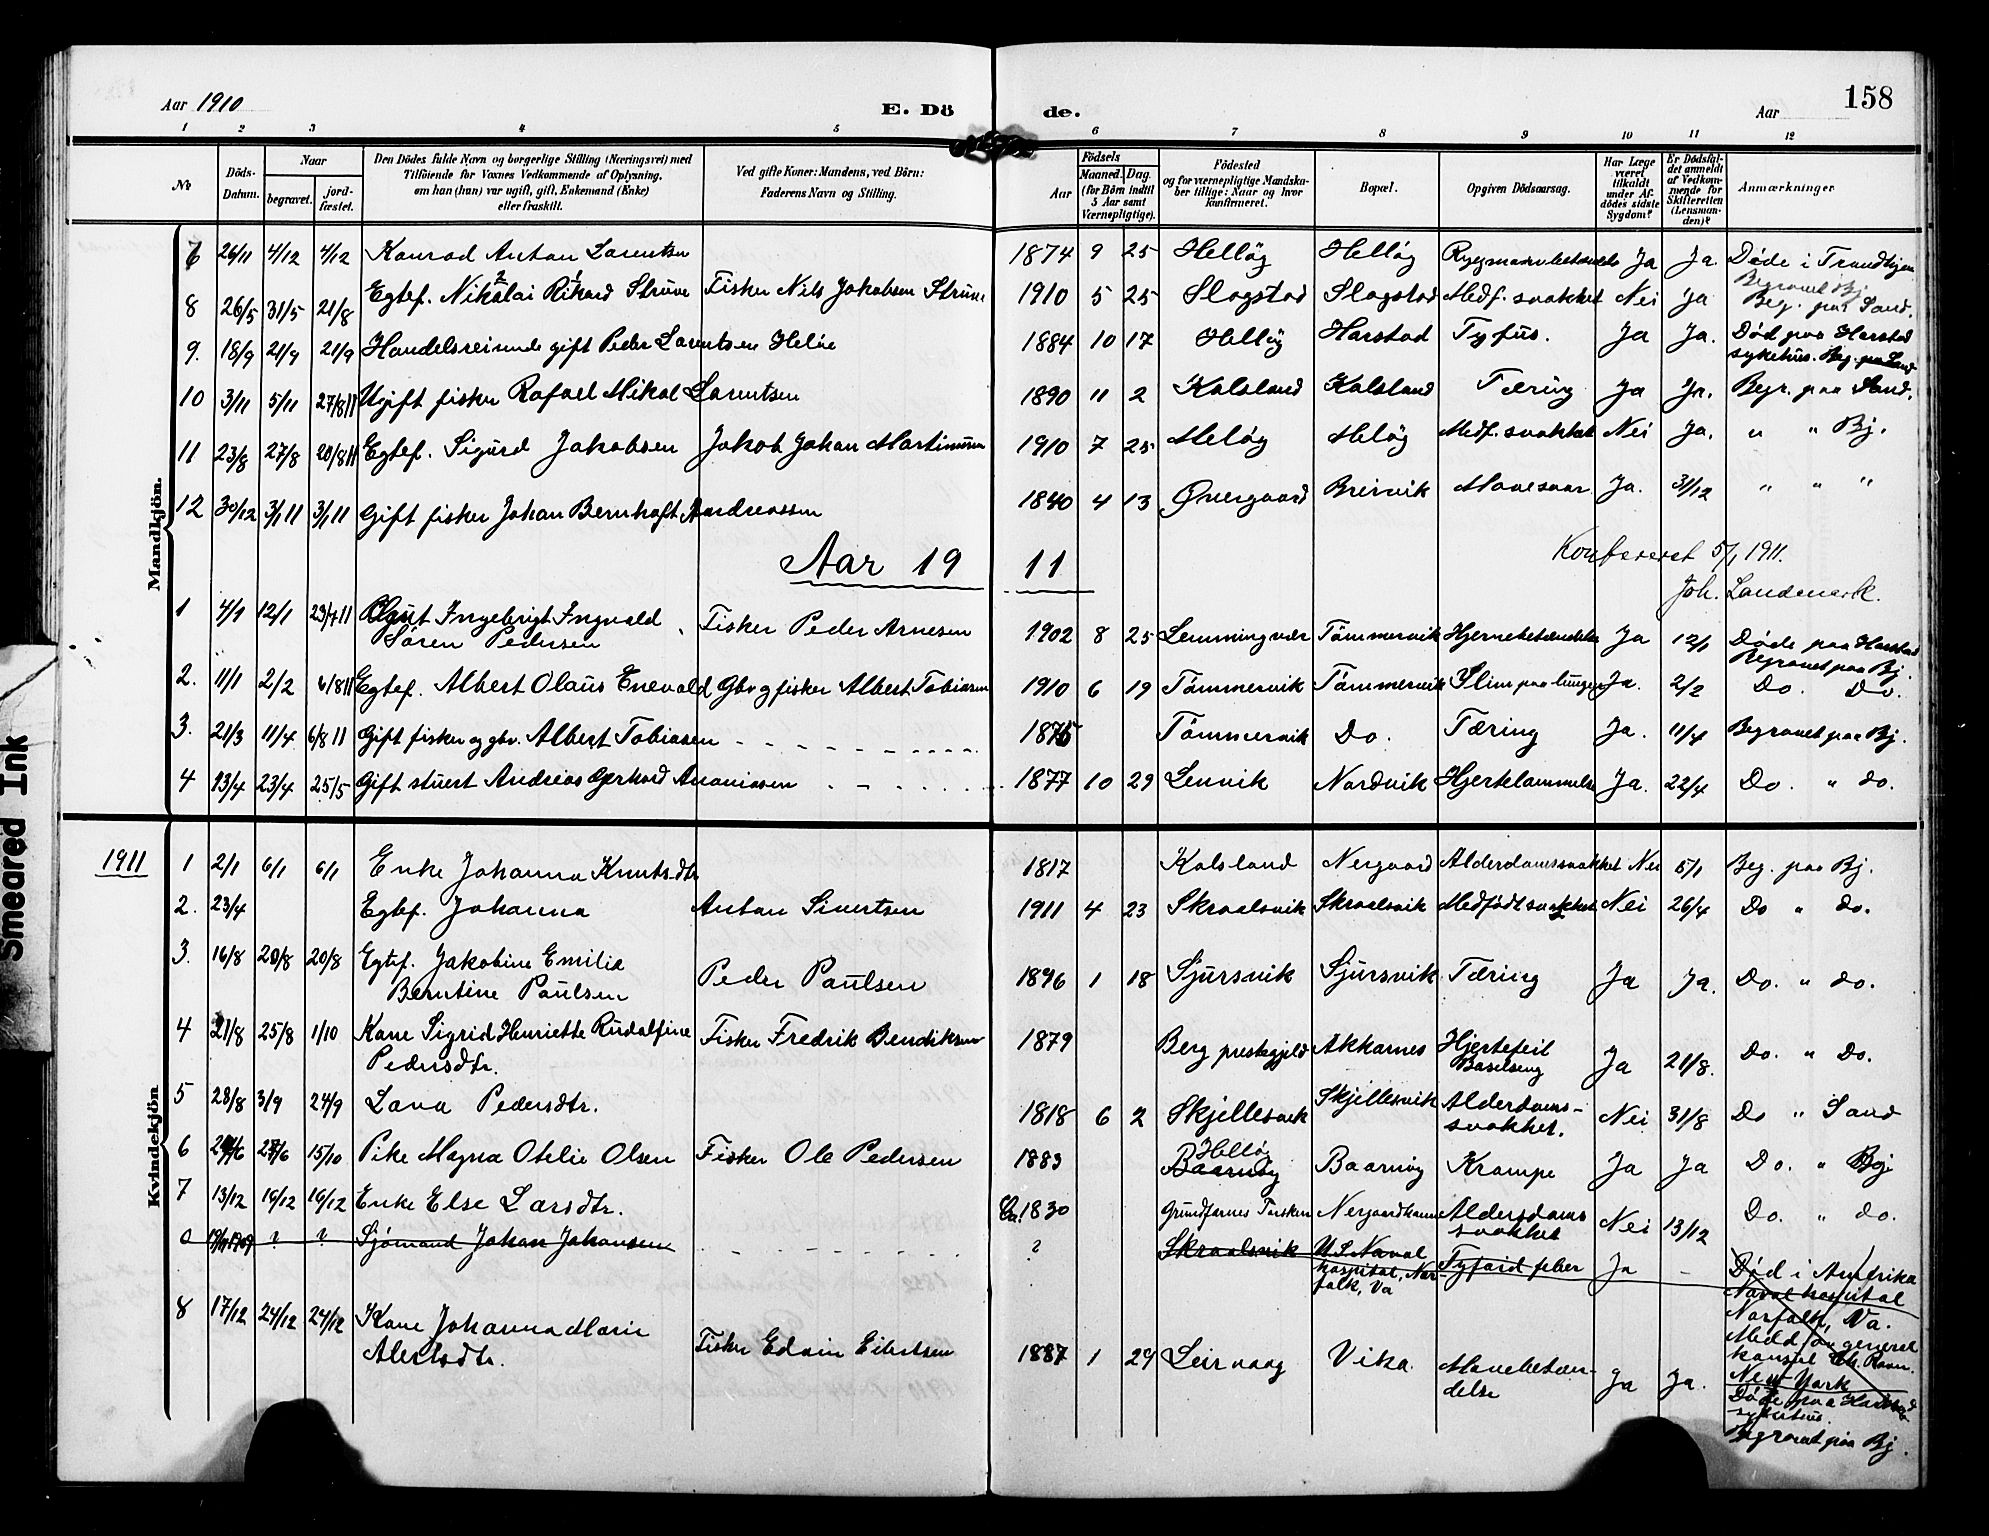 Aar 1910 E. Dö de. Aar 158
1 2 3 4 5 6 7 8 9 10 11 12
No
Döds-Datum.
Naar
begravet.
jord-fæstet.
Den Dödes fulde Navn og borgerlige Stilling (Næringsvei) med
Tilföiende for Voxnes Vedkommende af Oplysning,
om han (hun) var ugift, gift, Enkemand (Enke)
eller fraskilt.
Ved gifte Koner: Mandens, ved Börn:
Faderens Navn og Stilling.
Födsels
Aar
Maaned. Dag.
(for Börn indtil
5 Aar samt
Værnepligtige).
Födested
og for værnepligtige Mandska-
ber tillige: Naar og hvor
konfirmeret.
Bopæl.
Opgiven Dödsaarsag.
Har Læge
været
tilkaldt
under Af-
dödes sidste
Sygdom?
Er Dödsfal-
det anmeldt
af Vedkom-
mende for
Skifteretten
(Lensman-
den)?
Anmærkninger
Mandkjön.
26/11 4/12 4/12 Konrad Anton Larentsen 1874 9 25 Hellög Hellög Rygmarvbetændelse Ja Ja. Döde i Trondhjem
Begravet Bj
8 26/5 31/5 21/8 Egtef. Nikolai Rikard Strüve Fisker Nils Jakobsen Strüve 1910 5 25 Slogstad Slogstad Medf. svakhet Nei Ja Beg. paa Sand.
9. 18/9 21/9 21/9 Handelsreisende gift Peder Larentsen Helöe 1884 10 17 Hellög Harstad Tyfus. Ja Ja. Död paa Harstad
sykehus. Beg. paa Sand
10 3/11 5/11 27/8 11 Ugift fisker Rafael Mikal Larentsen 1890 11 2 Kalsland Kalsland Tæring Ja Ja. Begr. paa Sand.
11 23/8 27/8 20/8 11 Egtef. Sigurd Jakobsen Jakob Johan Martinusen 1910 7 25 Helög Helög Medf. svakhet Nei Ja. " " Bj.
12 30/12 3/1 11 3/1 11 Gift fisker Johan Bernhoft Andreassen 1840 4 13 Övergaard Breivik Mavesaar Ja. 31/12 " " "
Aar 19 11 Konfereret 5/1 1911.
Joh. Landmark.
1 4/1 12/1 23/4 11 Olaut Ingebrigt Ingvald
Sören Pedersen Fisker Peder Arnesen 1902 8 25 Lemmingvær Tömmervik Hjernebetændelse Ja 12/1 Döde paa Harstad
Begravet paa Bj.
2. 11/1 2/2 6/8 11 Egtef. Albert Olaus Enevald Gbr og fisker Albert Tobiasen 1910 6 19 Tömmervik Tömmervik Slim paa lungen Ja. 2/2 Do. Do.
3. 21/3 11/4 6/8 11 Gift fisker og gbr. Albert Tobiasen 1875 Tömmervik Do. Tæring Ja. 11/4 Begravet paa Bj.
4 13/4 23/4 25/5 Gift stuert Andreas Gerhard Ananiasen 1877 10 29 Lenvik Nordvik Hjertelammelse Ja. 22/4 Do. " do.
Kvindekjön
1911 1 2/1 6/1 6/1 Enke Johanna Knutsdtr 1817 Kalsland Nergaard Alderdomssvakhet Nei 5/1 Beg. paa Bj.
2. 23/4 Egtef. Johanna Anton Sivertsen 1911 4 23 Skrolsvik Skrolsvik Medfödt svakhet Nei 26/4 Do " do.
3. 16/8 20/8 20/8 Egtef. Jakobine Emilie
Berntine Paulsen Peder Paulsen 1896 1 18 Sjursvik Sjursvik Tæring Ja Ja. Do. " do.
4 21/8 25/8 1/10 Kone Sigrid Henriette Rudalfine
Pedersdtr. Fisker Fredrik Bendiksen 1879 Berg prestegjeld Akkarnes Hjertefeil
Ja 21/8. Do. " Do.
5 28/8 3/9 24/9 Lava Pedersdtr. 1818 6 2 Skjellesvik Skjellesvik Alderdoms-
svakhet. Nei 31/8 Do " Sand
6 27/6 15/10 Pike Magna Otelie Olsen Fisker Ole Pedersen 1883 Hellög
Baarnög Baarnög Krampe Ja Ja Do. " Bj
7 13/12 19/12 19/12 Enke Else Larsdtr. Ca. 1830 Grundfarnes Torsken Nergaardhamn Alderdoms
svakhet Nei 13/12 Do. " do.
0 ? ? Sjömand Johan Johansen ? Skrolsvik U.S. Naval
hospital, Nor-
folk, Va Tyfoid feber Ja - Död i Amerika
Naval hospital
Norfolk, Va.
Medd. fra general
konsul Ch. Ravn.
New-York
8 17/12 24/12 24/12 Kone Johanna Marie
Alertsdtr. Fisker Edvin Eilertsen 1887 1 29 Leirvaag Vika. Mavebetæn-
delse Ja Ja. Döde paa Harstad
sykehus.
Begravet paa Bj.
Smeared Ink